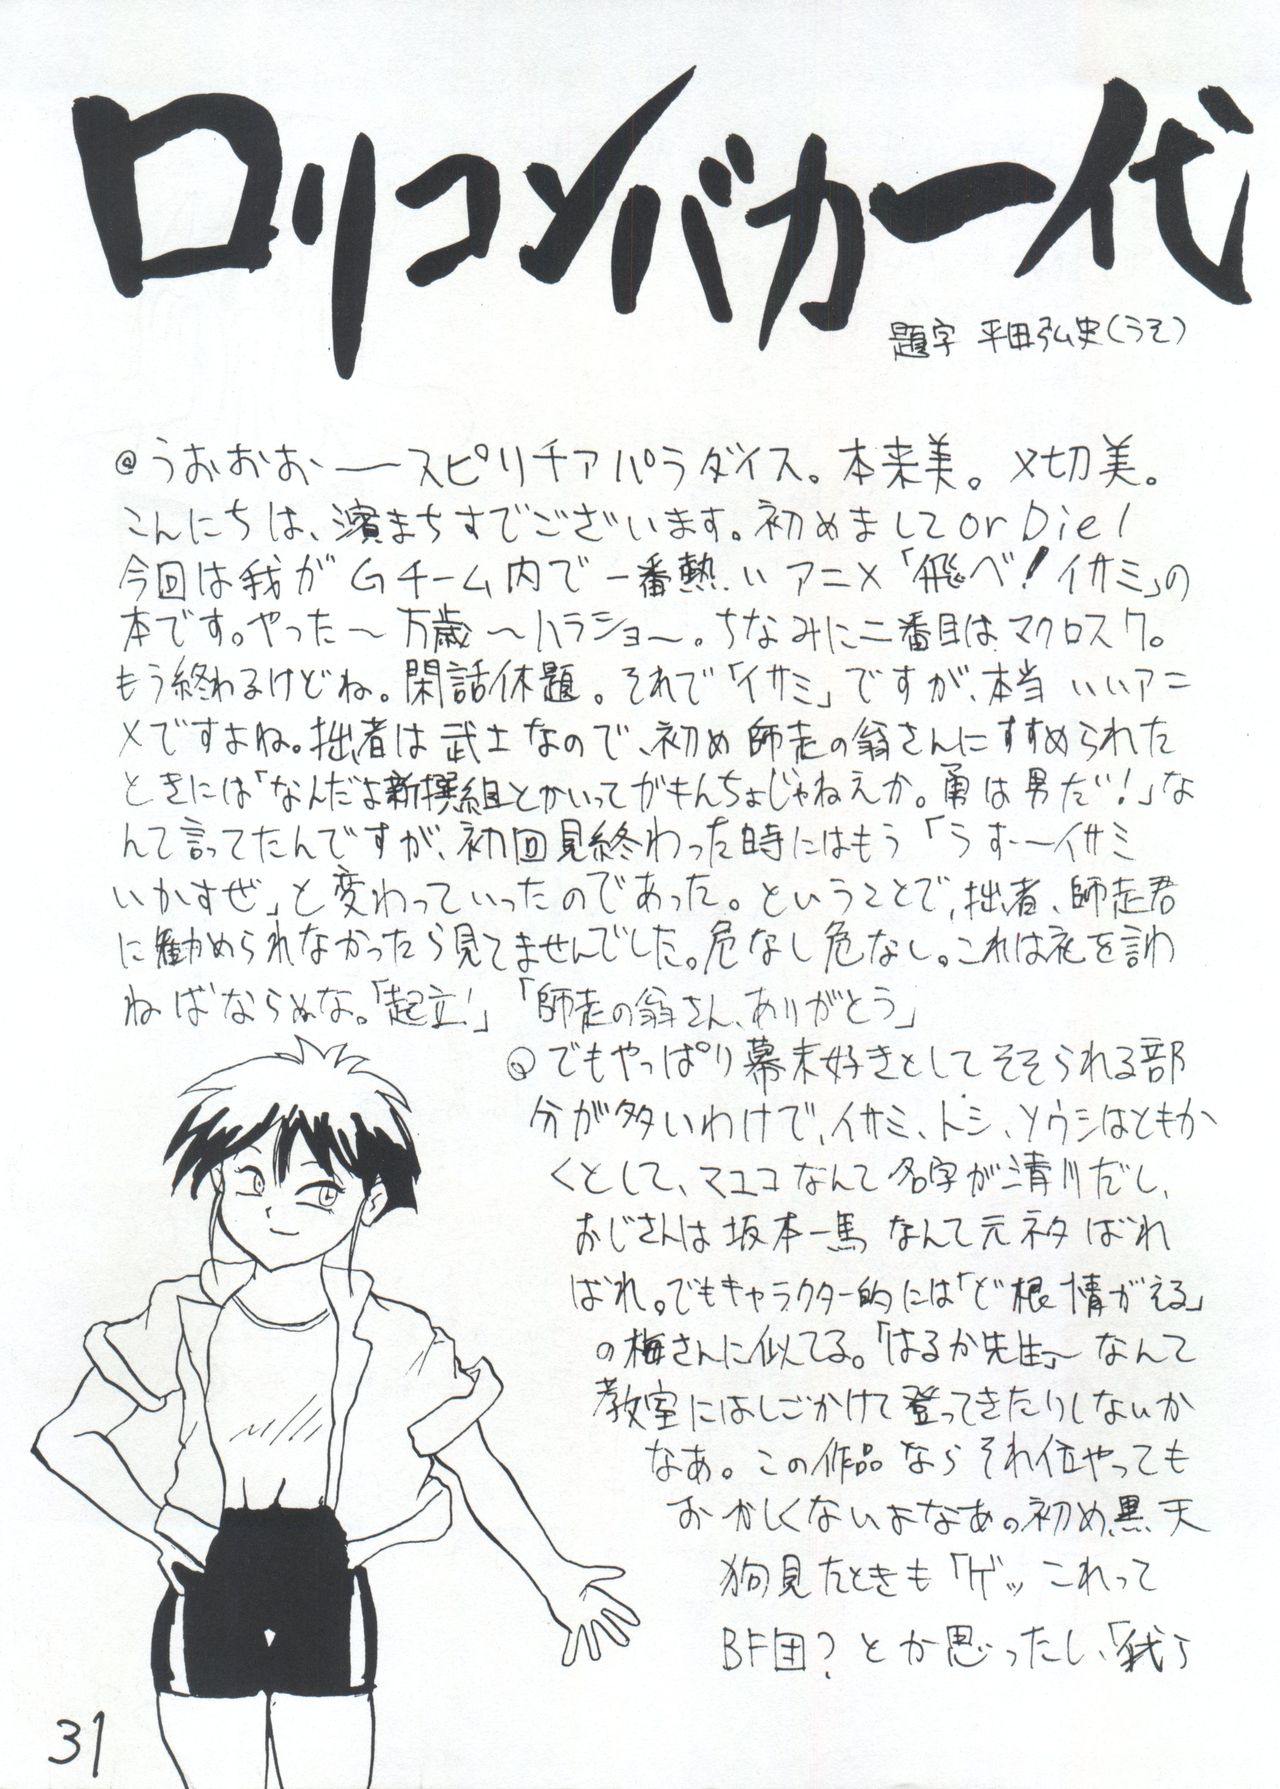 ロリコンバカ一代
題字 平田弘史(うそ)
@うおおお――スピリチアパラダイス。本来美。〆切美。
こんにちは、濱まちすでございます。初めまして or Die!
今回は我がGチーム内で一番熱いアニメ「飛べ!イサミ」の
本です。やった〜万歳〜ハラショ〜。ちなみに二番目はマクロス7。
もう終わるけどね。閑話休題。それで「イサミ」ですが、本当いいアニ
メですよね。拙者は武士なので、初め師走の翁さんにすすめられた
ときには「なんだよ新撰組とかいってがきんちょじゃねえか。勇は男だ!」な
んて言ってたんですが、初回見終わった時にはもう「うす――イサミ
いかすぜ」と変わっていったのであった。ということで、拙者、師走君
に勧められなかったら見てませんでした。危なし危なし。これは礼を言わ
ねばならぬな。「起立!」「師走の翁さん、ありがとう」
@でもやっぱり幕末好きとしてそそられる部
分が多いわけで、イサミ、トシ、ソウシはともか
くとして、マユコなんて名字が清川だし、
おじさんは坂本一馬なんて元ネタばれ
ばれ。でもキャラクター的には「ど根情がえる」
の梅さんに似てる。「はるか先生」〜なんて
教室にはしごかけて登ってきたりしないか
なあ。この作品ならそれ位やっても
おかしくないよなあ。初め、黒天
狗見たときも「ゲッこれって
BF団?とか思ったし、「我ら
31